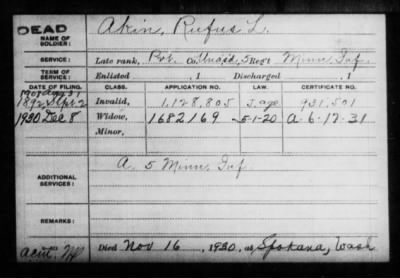 DEAD
NAME OF SOLDIER: Akin, Rufus L.
SERVICE: Late rank, Pvt. Co. Unasgd, 5 Reg't Minn Inf.
TERM OF SERVICE: Enlisted , 1 Discharged , 1
DATE OF FILING. CLASS. APPLICATION NO. LAW. CERTIFICATE NO.
1892 Apr. 2 Invalid, 1,128,805 931,501
1930 Dec 8 Widow, 1682169 5-1-20 A-6-17-31
Minor,
ADDITIONAL SERVICES: A. 5 Minn. Inf
REMARKS:
Died Nov 16, 1930, at Spokana, Wash